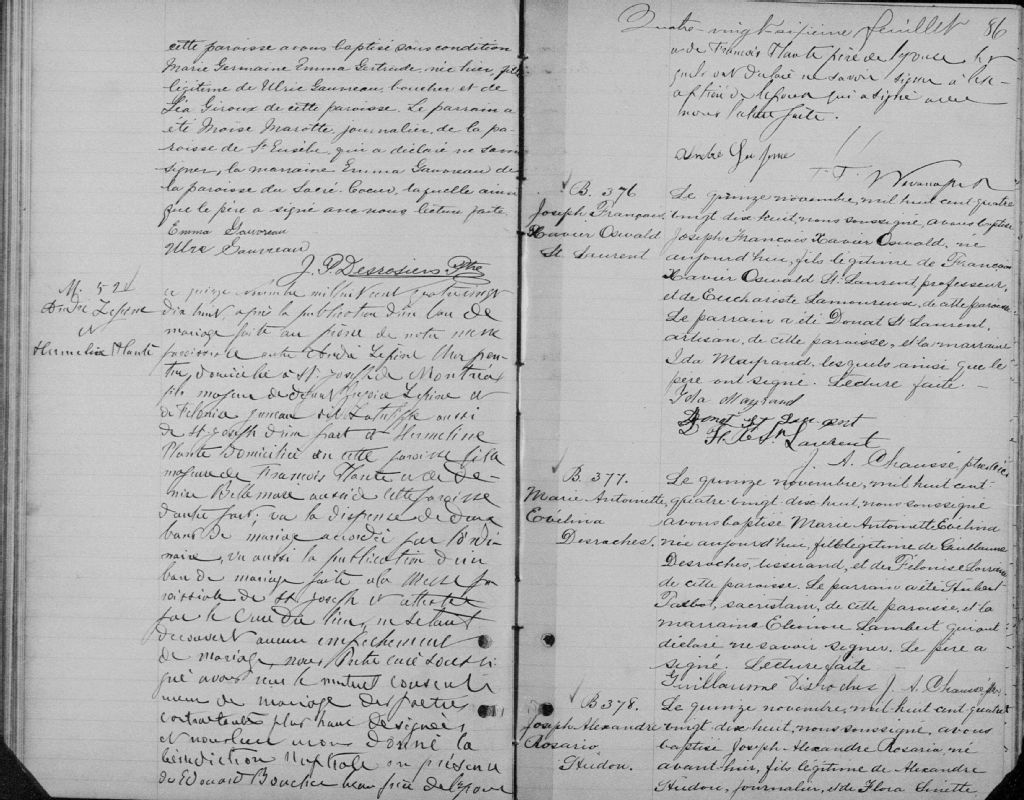 cette paroisse avons baptisé sous condition
Marie Germaine Emma Gertrude, née hier, fille
légitime de Ulric Gauvreau, boucher et de
Léa Giroux de cette paroisse. Le parrain a
été Moïse Marotte, journalier, de la pa-
roisse de St Eusèbe, qui a déclaré ne savoir
signer, la marraine Emma Gauvreau de
la paroisse du Sacré Coeur, laquelle ainsi
que le père a signé avec nous lecture faite.
Emma Gauvreau
Ulric Gauvreau
J. P Desrosiers Ptre
M. 524
André Lepine
et
Hermelia Plante
Le quinze novembre mil huit cent quatrevingt
dix huit, après la publication d'un ban de
mariage faite au prône de notre messe
paroissiale entre André Lepine
domicilié à St Joseph de Montréal
fils majeur de defunt Lepine et
de Juneau aussi
de St Joseph d'une part et Hermeline
Plante domiciliée en cette paroisse fille
majeure de François Plante et de
Bellemare aussi de cette paroisse
d'autre part; vu la dispense de deux
bans de mariage accordée par l'ordi-
naire, vu aussi la publication d'un
ban de mariage faite à la messe pa
roissiale de St Joseph et attestée
par le Curé du lieu, ne s'étant
découvert aucun empêchement
de mariage, nous Prêtre curé soussi
gné avons reçu le mutuel consente
ment de mariage des parties
contractantes plus haut désignées
et nous leur avons donné la
bénédiction nuptiale en présence
de Edouard Boucher beau frère de l'époux
Quatre-vingt-sixième feuillet 86
et de François Plante père de l'épouse les
quels ont déclaré ne savoir signer à l'ex-
ception de l'époux qui a signé avec
nous lecture faite.
André Lepine
B. 376
Joseph François
Xavier Oswald
St Laurent
Le quinze novembre, mil huit cent quatre
vingt dix huit, nous soussigné, avons baptisé
Joseph François Xavier Oswald, né
aujourd'hui, fils légitime de François
Xavier Oswald St Laurent, professeur,
et de Euchariste Lamoureuse, de cette paroisse
Le parrain a été Donat St Laurent,
artisan, de cette paroisse, et la marraine
Ida Mayrand, lesquels ainsi que le
père ont signé. Lecture faite -
Ida Mayrand
Donat St Laurent
St Laurent
J. A. Chaussé, ptre
B. 377.
Marie Antoinette
Evélina
Desroches.
Le quinze novembre, mil huit cent
quatre vingt dix huit, nous soussigné
avons baptisé Marie Antoinette Evelina
née aujourd'hui, fille légitime de Guillaume
Desroches, tisserand, et de Félonise
de cette paroisse. Le parrain a été Hubert
sacristain, de cette paroisse, et la
marraine Eléonore Lambert qui ont
déclaré ne savoir signer. Le père a
signé. Lecture faite
Guillaume Desroches J. A. Chaussé ptre
B 378.
Joseph Alexandre
Rosario
Hudon.
Le quinze novembre, mil huit cent quatre
vingt dix huit, nous soussigné, avons
baptisé Joseph-Alexandre Rosario, né
avant hier, fils légitime de Alexandre
Hudon, journalier, et de Flora Sinette